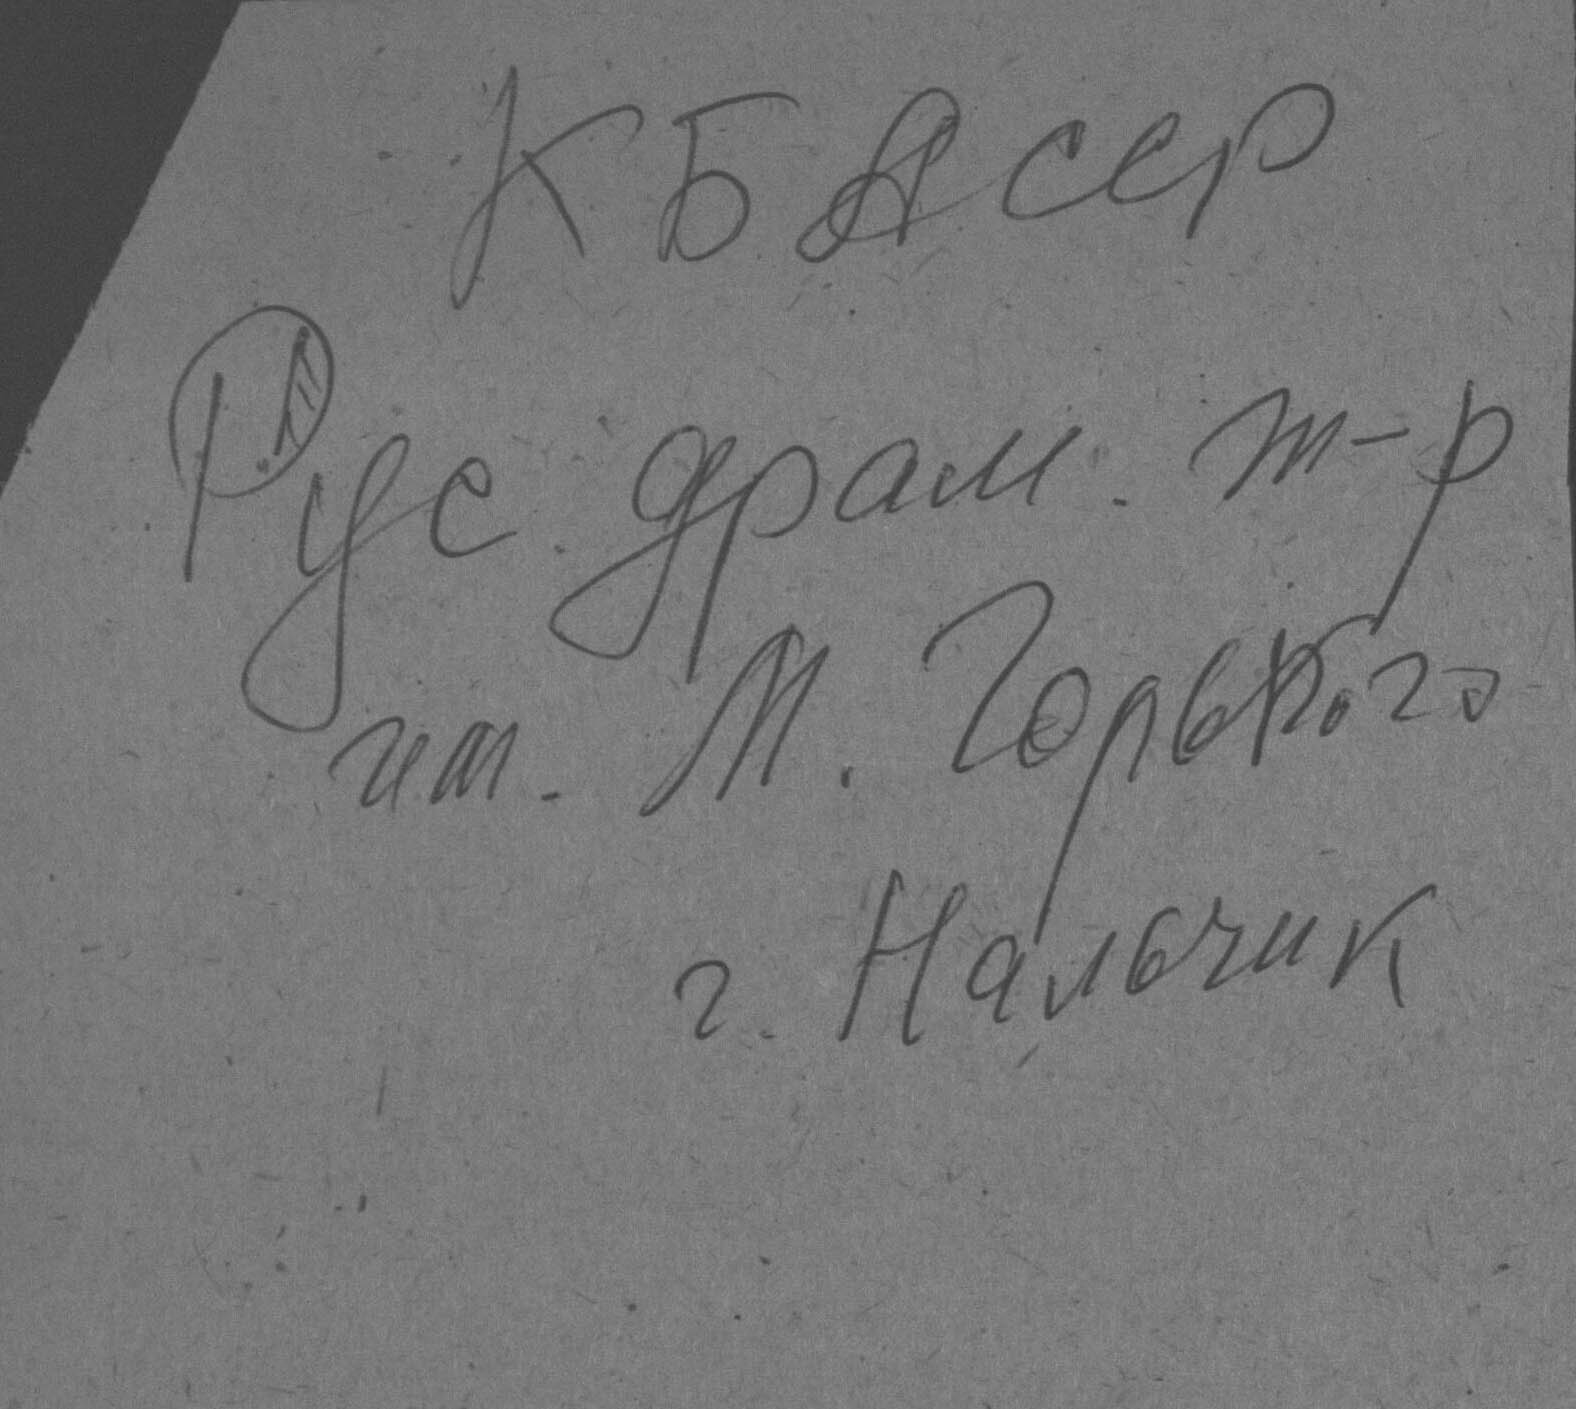 КБАССР
Рус драм. т-р
им. М. Горького
г. Нальчик